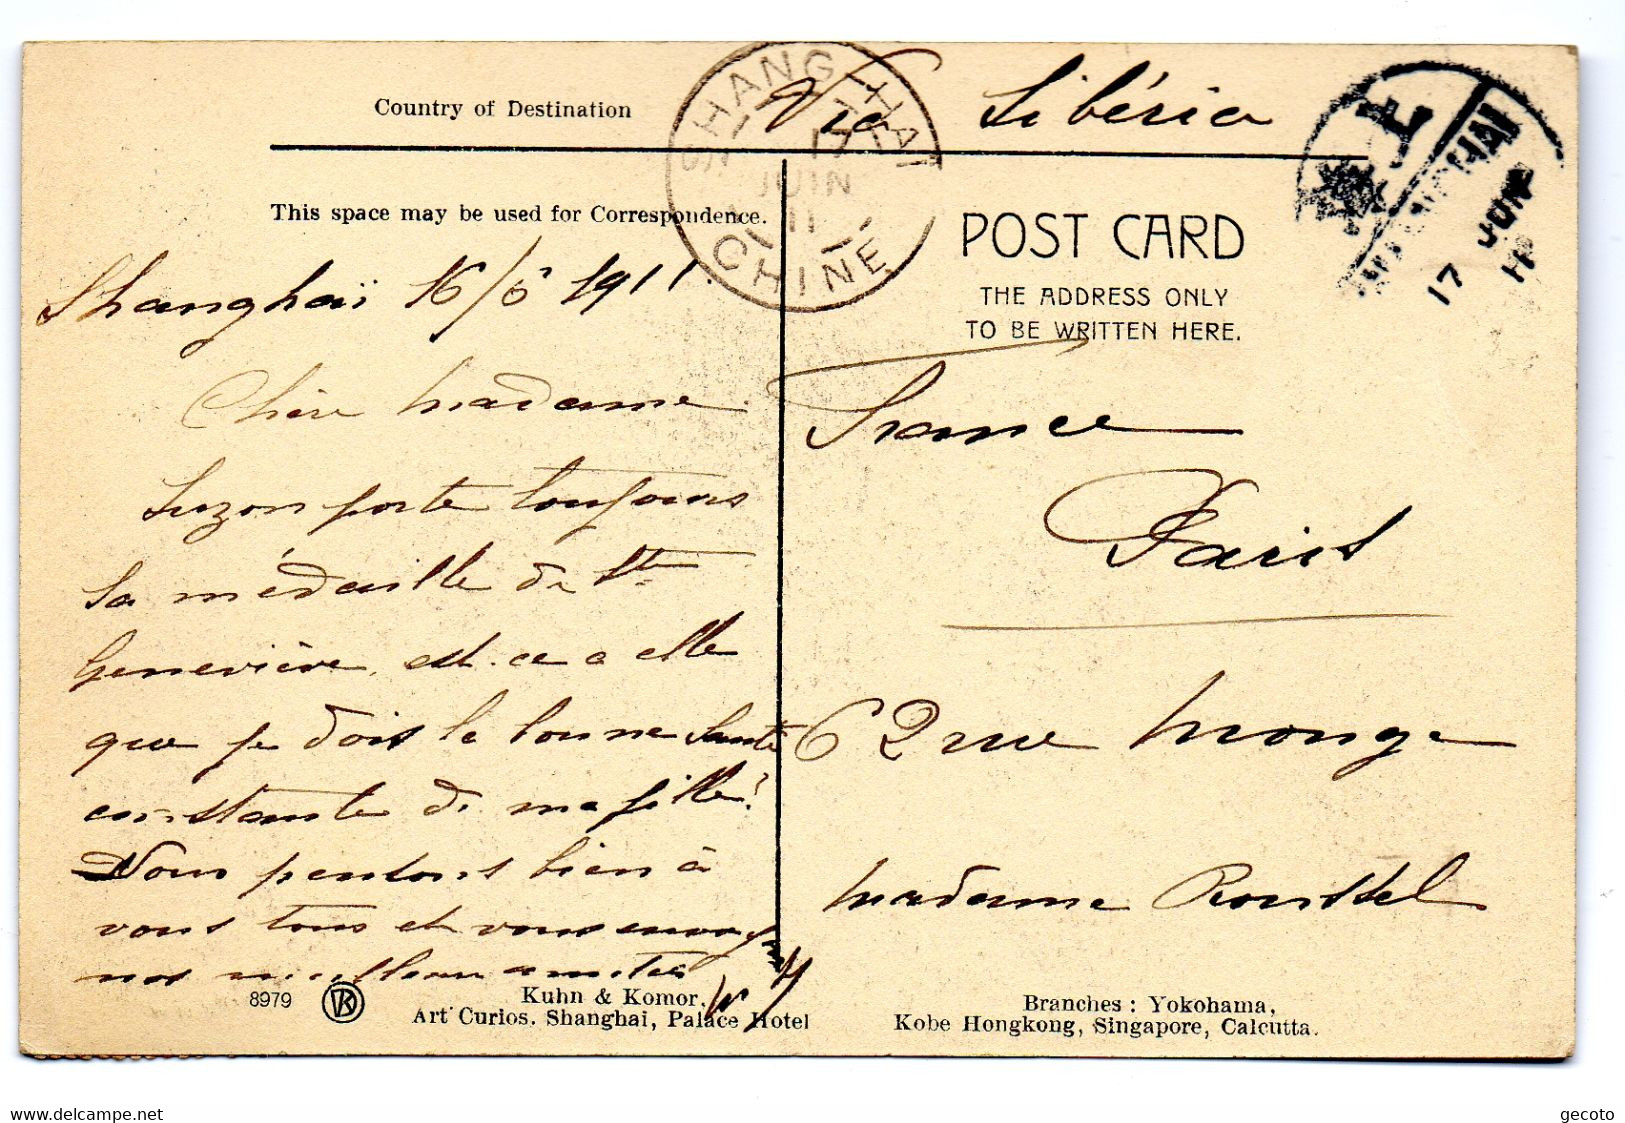 Country of Destination
Via Sibéria
SHANG-HAI
17
JUIN
11
CHINE
SHANGHAI
17 JUNE
11
This space may be used for Correspondence.
POST CARD
THE ADDRESS ONLY
TO BE WRITTEN HERE.
Shanghaï 16/6 1911.
Chère madame.
Suzon porte toujours
sa médaille de Ste
Geneviève, est-ce a elle
que je dois la bonne santé
constante de ma fille?
Nous pensons bien à
vous tous et vous envoy
nos meilleures amitiés
France
Paris
62 rue Monge
Madame Rousttel
8979
K
Kuhn & Komor.
Art Curios. Shanghai, Palace Hotel
Branches: Yokohama,
Kobe Hongkong, Singapore, Calcutta.
delcampe.net
gecoto